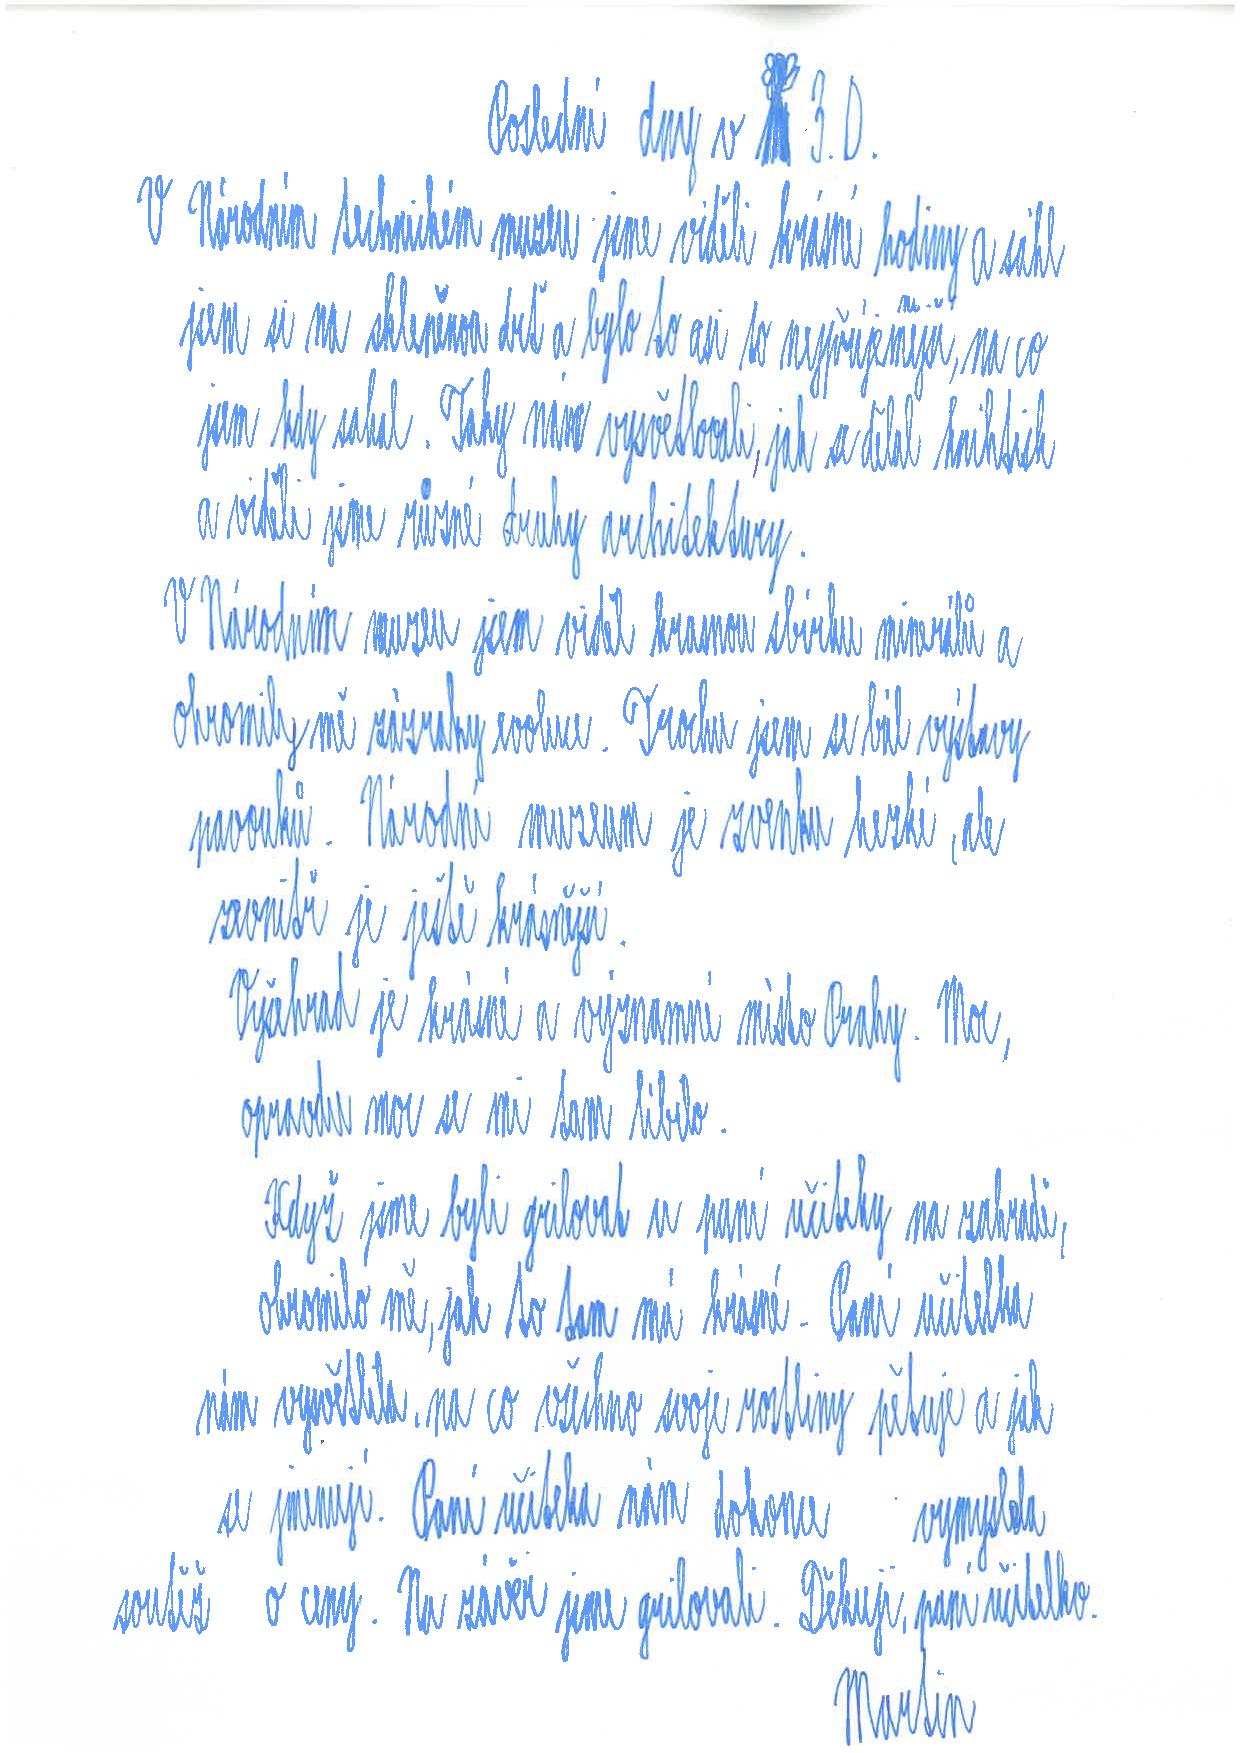 Poslední dny v 3. D.
V Národním technickém muzeu jsme viděli krásné hodiny a sáhl
jsem si na skleněnou a bylo to asi to nejpříjemnější, na co
jsem kdy sahal. Taky nám vysvětlovali, jak se dělal knihtisk
a viděli jsme různé druhy architektury.
V Národním muzeu jsem viděl krasnou sbírku minerálů a
ohromily mě zázraky evoluce. Trochu jsem se bál výstavy
pavouků. Národní muzeum je zvenku hezké, ale
zevnitř je ještě krásnější.
Vyšehrad je krásné a významné místo Prahy. Moc,
opravdu moc se mi tam líbilo.
Když jsme byli grilovat u paní učitelky na zahradě,
ohromilo mě, jak to tam má krásné. Paní učitelka
nám vysvětlila, na co všechno svoje rostliny pěstuje a jak
se jmenují. Paní učitelka nám dokonce vymyslela
soutěž o ceny. Na závěr jsme grilovali. Děkuji, paní učitelko.
Martin